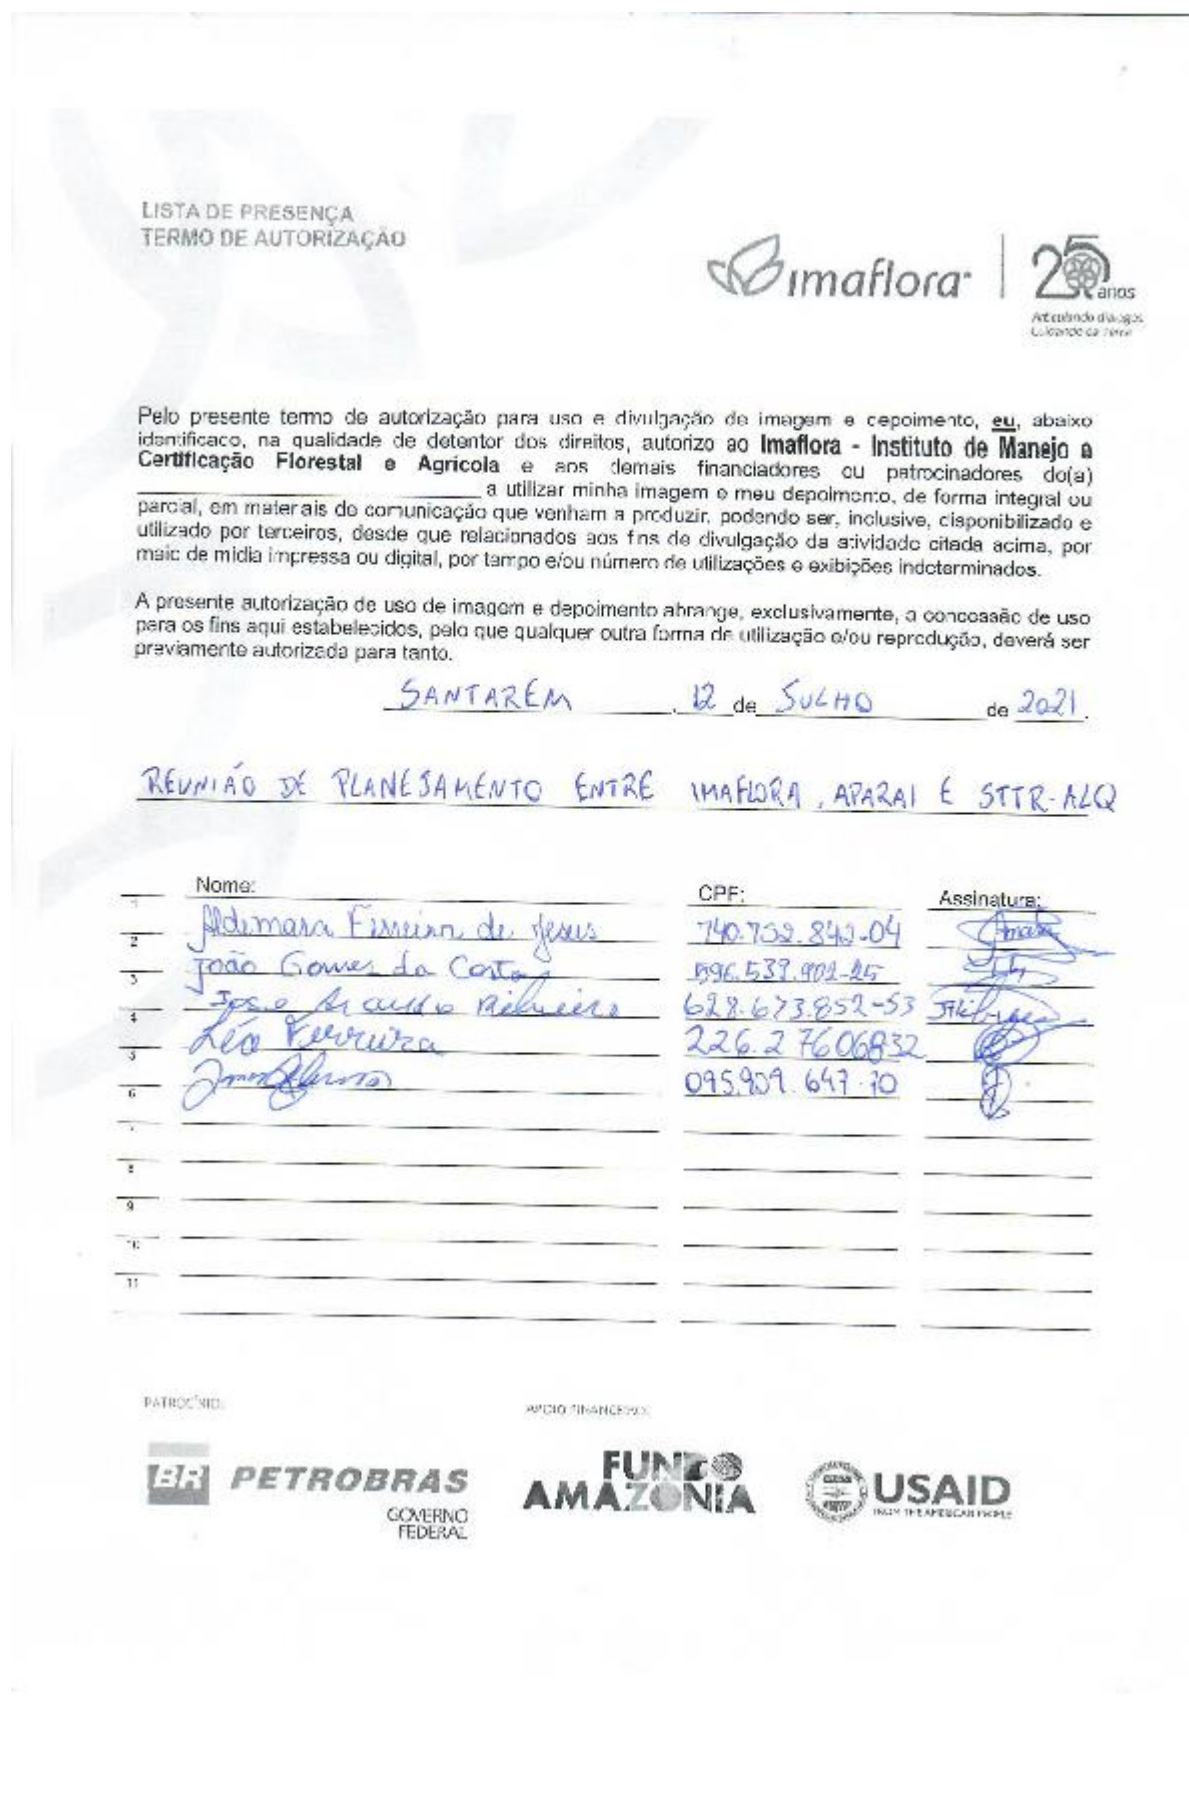 LISTA DE PRESENÇA
TERMO DE AUTORIZAÇÃO
imaflora
25 anos
Articulando diálogos
Cuidando da Terra
Pelo presente termo de autorização para uso e divulgação de imagem e depoimento, eu, abaixo
identificado, na qualidade de detentor dos direitos, autorizo ao Imaflora - Instituto de Manejo e
Certificação Florestal e Agrícola e aos demais financiadores ou patrocinadores do(a)
a utilizar minha imagem e meu depoimento, de forma integral ou
parcial, em materais de comunicação que venham a produzir, podendo ser, inclusive, disponibilizado e
utilizado por terceiros, desde que relacionados aos fins de divulgação da atividade citada acima, por
meio de mídia impressa ou digital, por tempo e/ou número de utilizações e exibições indeterminados.
A presente autorização de uso de imagem e depoimento abrange, exclusivamente, a concessão de uso
para os fins aqui estabelecidos, pelo que qualquer outra forma de utilização e/ou reprodução, deverá ser
previamente autorizada para tanto.
SANTARÉM, 12 de JULHO de 2021.
REUNIÃO DE PLANEJAMENTO ENTRE IMAFLORA, APARAI E STTR-ALQ
Nome: CPF: Assinatura:
1
2 Aldemara Ferreira de Jesus 740.752.842-04
3 João Gomes da Costa 596.537.902-25
4 José Araujo Ribeiro 628.673.852-53
5 Léo Ferreira 226.27606832
6 095.909.647-70
7
8
9
10
11
PATROCÍNIO:
APOIO FINANCEIRO:
BR PETROBRAS
GOVERNO
FEDERAL
FUNDO
AMAZÔNIA
USAID
FROM THE AMERICAN PEOPLE